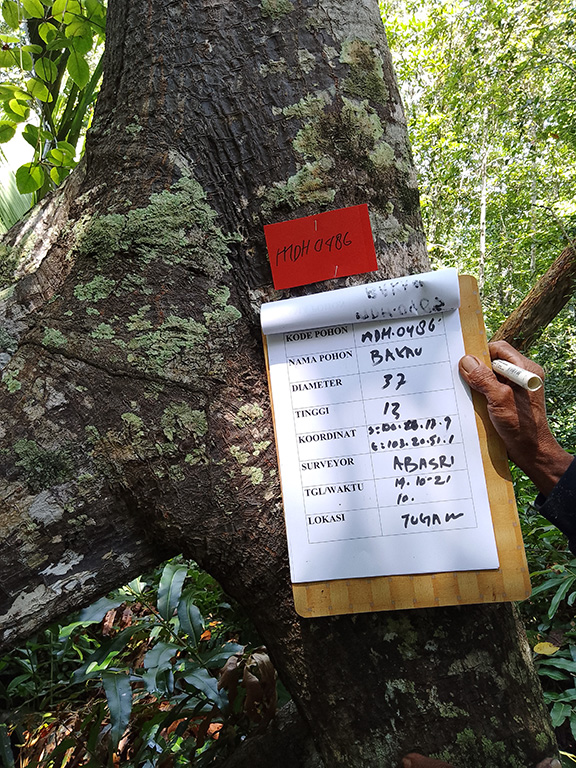 MDH 0486
KODE POHON MDH.0486.
NAMA POHON BAKAU
DIAMETER 37
TINGGI 13
KOORDINAT
E: 103.20.51.1
SURVEYOR ABASRI
TGL/WAKTU 19.10-21
10.
LOKASI